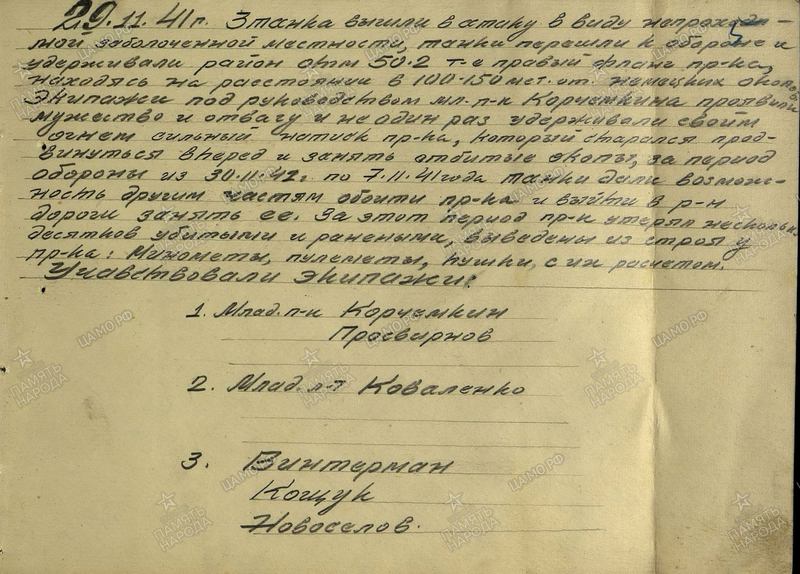 29.11.41 г. 3 танка вышли в атаку в виду непроходи-
мой заболоченной местности, танки перешли к обороне и
удерживали район отм 50.2 т-е правый фланг пр-ка,
находясь на расстоянии в 100-150 мет. от немецких окопов
Экипажи под руководством мл. л-к Корчемкина проявили
мужество и отвагу и не один раз удерживали своим
огнем сильный натиск пр-ка, который старался прод-
винуться вперед и занять отбитые окопы, за период
обороны из 30.11.42г. по 7.11.41 года танки дали возмож-
ность другим частям обойти пр-ка и выйти в р-н
дороги занять ее. За этот период пр-к утерял несколько
десятков убитыми и ранеными, выведены из строя у
пр-ка: Минометы, пулеметы, пушки, с их расчетом.
Учавствовали экипажи:
1. Млад. л-к Корчемкин
Просвирнов
2. Млад. л-т Коваленко
3. Винтерман
Кощук
Новоселов.
ПАМЯТЬ НАРОДА
ЦАМО РФ